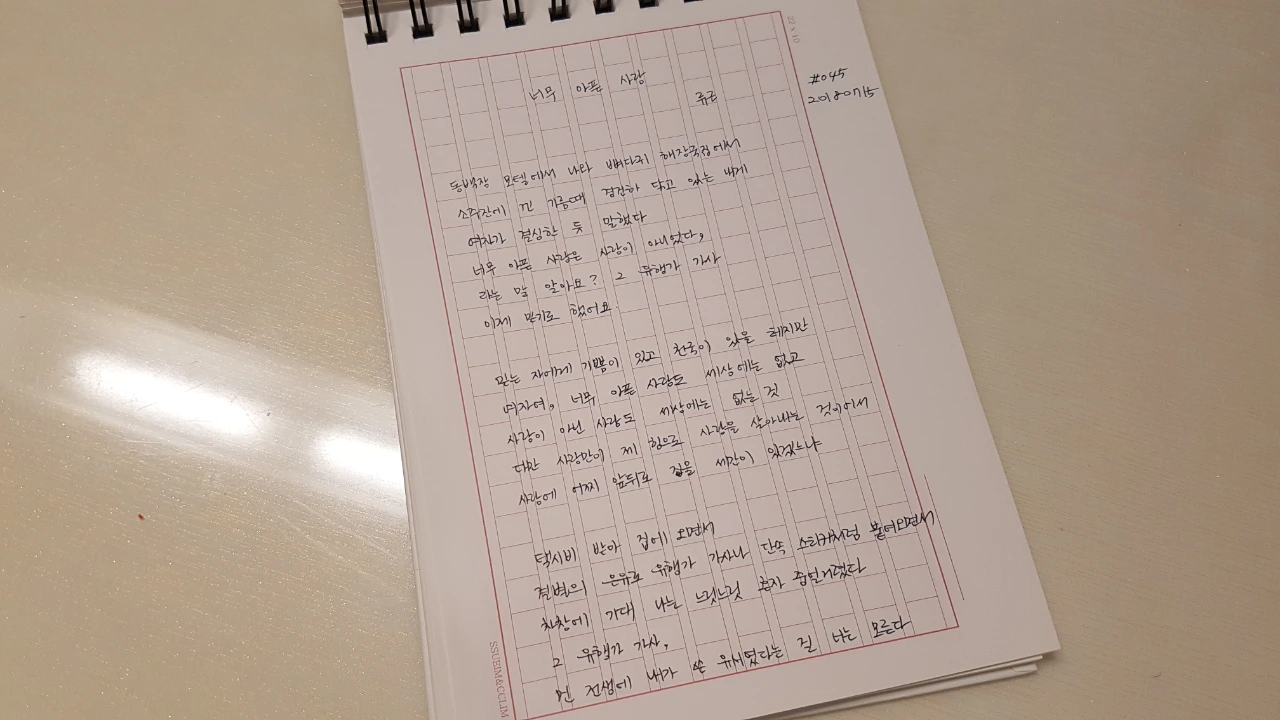 너무 아픈 사랑
류근
#045
20180715
22 x 10
동백장 모텔에서 나와 뼈다귀 해장국집에서
소주잔에 낀 기름때 경건하 닦고 있는 내게
여자가 결심한 듯 말했다
너무 아픈 사랑은 사랑이 아니었다,
라는 말 알아요? 그 유행가 가사
이제 믿기로 했어요.
믿는 자에게 기쁨이 있고 천국이 있을 테지만
여자여, 너무 아픈 사랑도 세상에는 없고
사랑이 아닌 사랑도 세상에는 없는 것
다만 사랑만이 제 힘으로 사랑을 살아내는 것이어서
사랑에 어찌 앞뒤로 집을 세간이 있겠느냐
택시비 받아 집에 오면서
결별의 은유로 유행가 가사나 단속 스티커처럼 붙여오면서
차창에 기대 나는 느릿느릿 혼자 중얼거렸다
그 유행가 가사,
먼 전생에 내가 쓴 유서였다는 걸 너는 모른다
SSUEIM&CCLIM